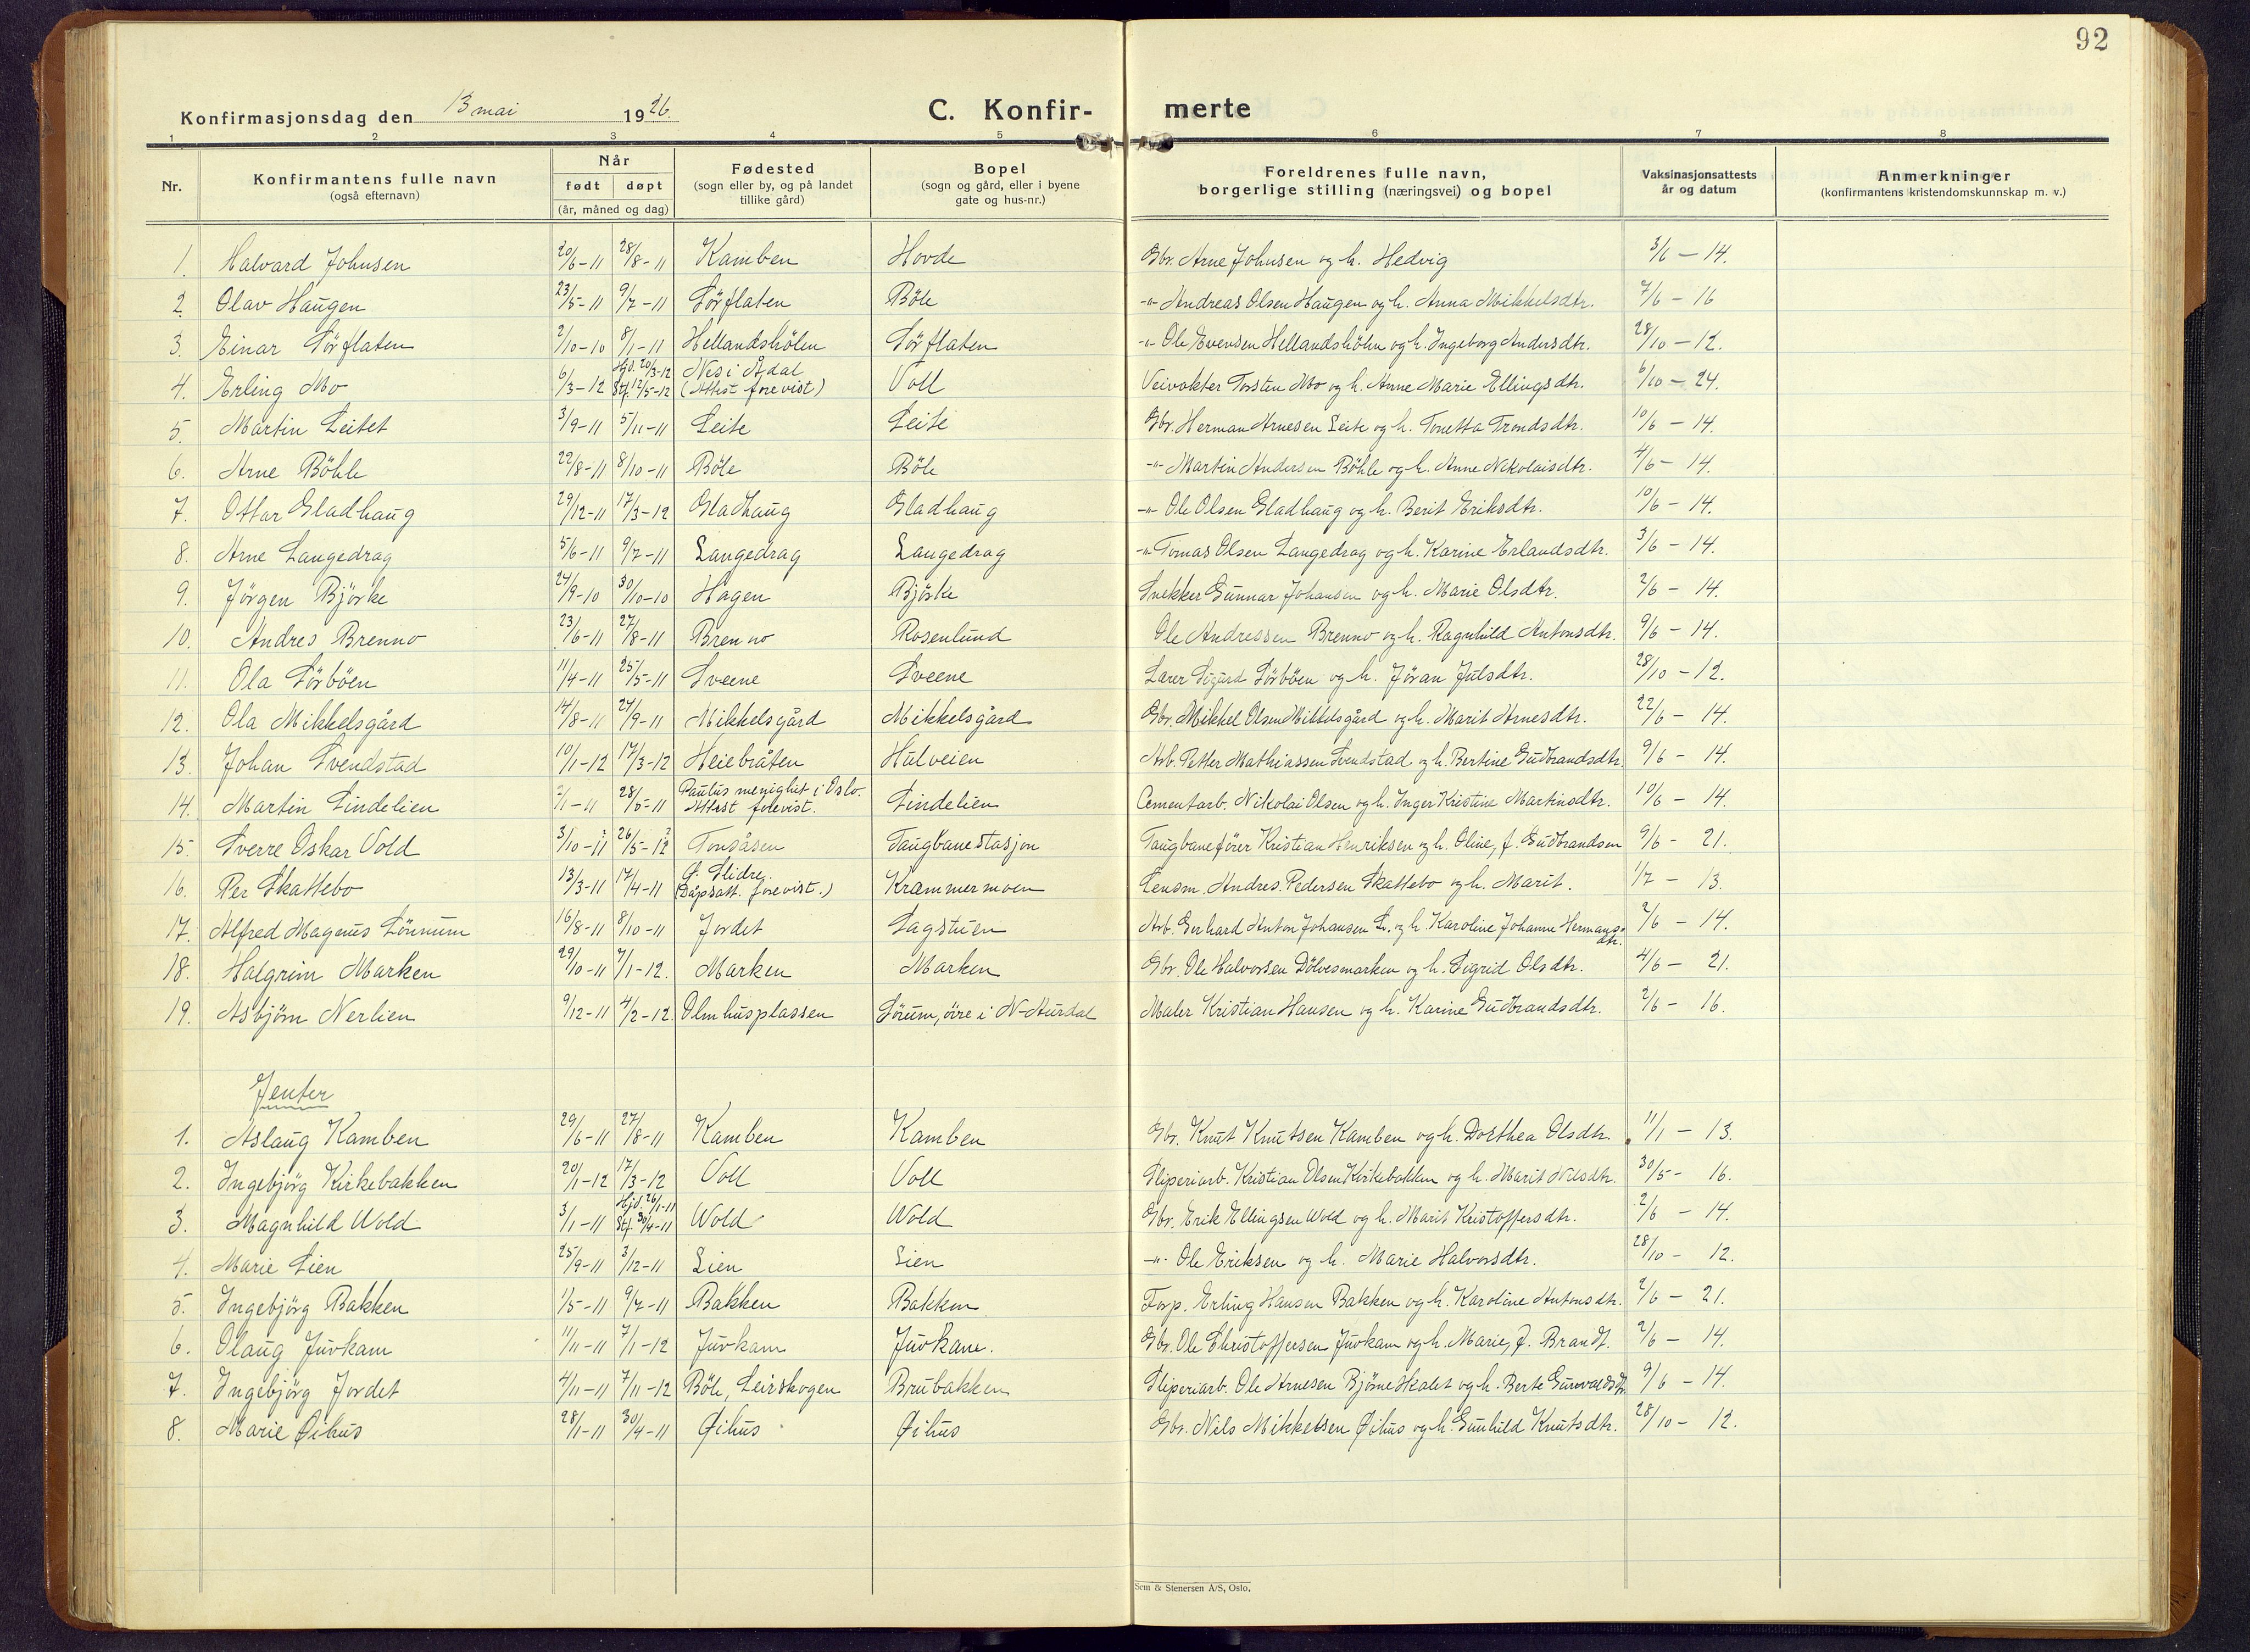 92
Konfirmasjonsdag den 13 mai 1926.
C. Konfir- merte
1 2 3 4 5 6 7 8
Nr. Konfirmantens fulle navn (også efternavn) Når født døpt (år, måned og dag) Fødested (sogn eller by, og på landet tillike gård) Bopel (sogn og gård, eller i byene gate og hus-nr.) Foreldrenes fulle navn, borgerlige stilling (næringsvei) og bopel Vaksinasjonsattests år og datum Anmerkninger (konfirmantens kristendomskunnskap m. v.)
1. Halvard Johnsen 20/6-11 28/8-11 Kamben Hovde Gbr. Arne Johnsen og h. Hedvig 3/6 - 14.
2. Olav Haugen 23/5-11 9/7-11 Sörflaten Böle -"- Andreas Olsen Haugen og h. Anna Mikkelsdtr. 7/6 - 16
3. Einar Sörflaten 2/10-10 8/1-11 Hellandshölen Sörflaten -"- Ole Evensen Hellandshölen og h. Ingeborg Andersdtr. 28/10 - 12.
4. Erling Mo 6/3-12 Hjd. 20/3-12 Stf. 12/5-12 Nes i Ådal (Attest forevist) Voll Veivokter Torsten Mo og h. Anne Marie Ellingsdtr. 6/10 - 24.
5. Martin Leitet 3/9-11 5/11-11 Leite Leite Gbr. Herman Arnesen Leite og h. Tonetta Trondsdtr. 10/6 - 14.
6. Arne Böhle 22/8-11 8/10-11 Böle Böle -"- Martin Andersen Böhle og h. Anne Nikolaisdtr. 4/6 - 14.
7. Ottar Gladhaug 29/12-11 17/3-12 Gladhaug Gladhaug -"- Ole Olsen Gladhaug og h. Berit Eriksdtr. 10/6 - 14.
8. Arne Langedrag 5/6-11 9/7-11 Langedrag Langedrag -"- Tomas Olsen Langedrag og h. Karine Erlandsdtr. 3/6 - 14.
9. Jörgen Björke 24/9-10 30/10-10 Hagen Björke Snekker Gunnar Johansen og h. Marie Olsdtr. 2/6 - 14.
10. Andres Brenno 23/6-11 27/8-11 Brenno Rosenlund Ole Andressen Brenno og h. Ragnhild Antonsdtr. 9/6 - 14.
11. Ola Sörböen 11/4-11 25/5-11 Sveene Sveene Lærer Sigurd Sörböen og h. Jöran Julsdtr. 28/10 - 12.
12. Ola Mikkelsgård 14/8-11 24/9-11 Mikkelsgård Mikkelsgård Gbr. Mikkel Olsen Mikkelsgård og h. Marit Arnesdtr. 22/6 - 14.
13. Johan Svendstad 10/1-12 17/3-12 Heiebråten Hulveien Arb. Petter Mathiassen Svendstad og h. Bertine Gudbrandsdtr. 9/6 - 14.
14. Martin Lindelien 2/1-11 28/5-11 Paulus menighet i Oslo. Attest forevist. Lindelien Cementarb. Nikolai Olsen og h. Inger Kristine Martinsdtr. 10/6 - 14.
15. Sverre Oskar Vold 3/10-11 26/5-12 Tonsåsen Taugbanestasjon Taugbanefører Kristian Henriksen og h. Oline, f. Gudbrandsen 9/6 - 21.
16. Per Skattebo 13/3-11 17/4-11 Ö. Slidre. (Dåpsatt. forevist.) Krammermoen Lensm. Andres Pedersen Skattebo og h. Marit. 1/7 - 13.
17. Alfred Magnus Lönnum 16/8-11 8/10-11 Jordet Sagstuen Arb. Gerhard Anton Johansen L. og h. Karoline Johanne Hermansdtr. 2/6 - 14.
18. Halgrim Marken 29/10-11 7/1-12. Marken Marken Gbr. Ole Halvorsen Dölvesmarken og h. Sigrid Olsdtr. 4/6 - 21.
19. Asbjörn Nerlien 9/12-11 4/2-12. Olmhusplassen Sörum, övre i N-Aurdal Maler Kristian Hansen og h. Karine Gudbrandsdtr. 2/6 - 16.
Jenter
1. Aslaug Kamben 29/6-11 27/8-11 Kamben Kamben Gbr. Knut Knutsen Kamben og h. Dorthea Olsdtr. 11/1 - 13.
2. Ingebjörg Kirkebakken 20/1-12 17/3-12 Voll Voll Sliperiarb. Kristian Olsen Kirkebakken og h. Marit Nilsdtr. 30/5 - 16.
3. Magnhild Wold 3/1-11 Hjd. 26/1-11 Stf. 30/4-11 Wold Wold Gbr. Erik Ellingsen Wold og h. Marit Kristoffersdtr. 2/6 - 14.
4. Marie Lien 25/9-11 3/12-11 Lien Lien -"- Ole Eriksen og h. Marie Halvorsdtr. 28/10 - 12.
5. Ingebjörg Bakken 1/5-11 9/7-11 Bakken Bakken Forp. Erling Hansen Bakken og h. Karoline Antonsdtr. 2/6 - 21.
6. Olaug Juvkam 11/11-11 7/1-12 Juvkam Juvkam. Gbr. Ole Christoffersen Juvkam og h. Marie, f. Brandt. 2/6 - 14.
7. Ingebjörg Jordet 4/11-11 7/11-12 Böle, Leirskogen Brubakken Sliperiarb. Ole Arnesen Björneskalet og h. Berte Gunvaldsdtr. 9/6 - 14.
8. Marie Øihus 28/1-11 30/4-11 Øihus Øihus Gbr. Nils Mikkelsen Øihus og h. Gunhild Knutsdtr. 28/10 - 12.
Sem & Stenersen A/S, Oslo.